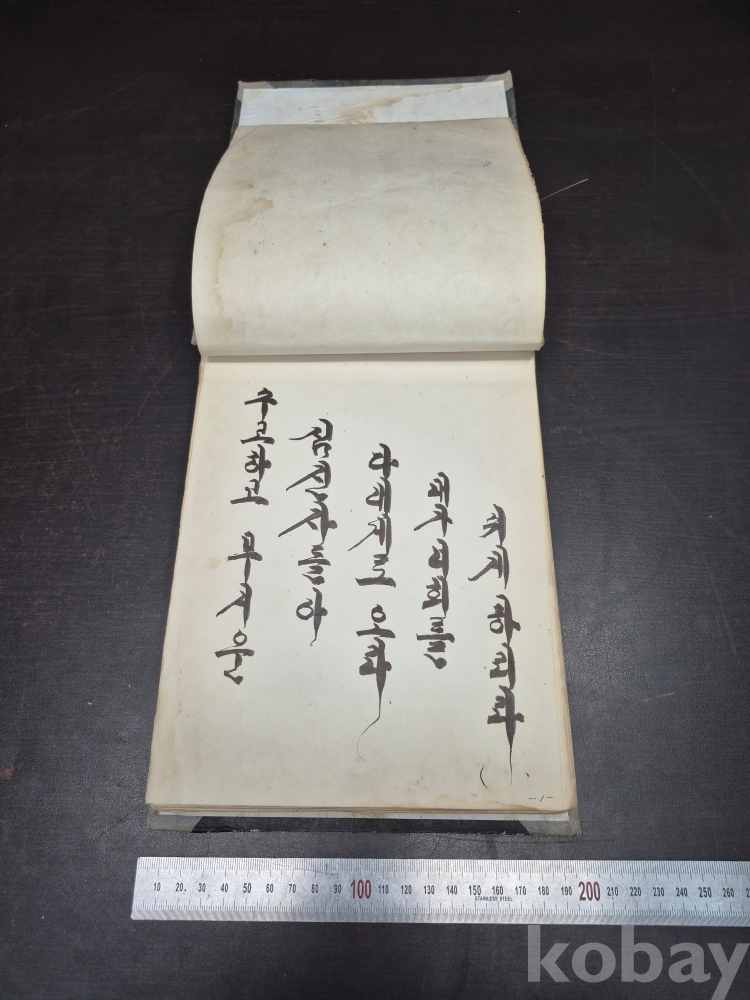 수고하고 무거운
짐진자들아
다 내게로 오라
내가 너희를
쉬게 하리라
-1-
10 20 30 40 50 60 70 80 90 100 110 120 130 140 150 160 170 180 190 200 210 220 230 240 250 260
STAINLESS STEEL
kobay